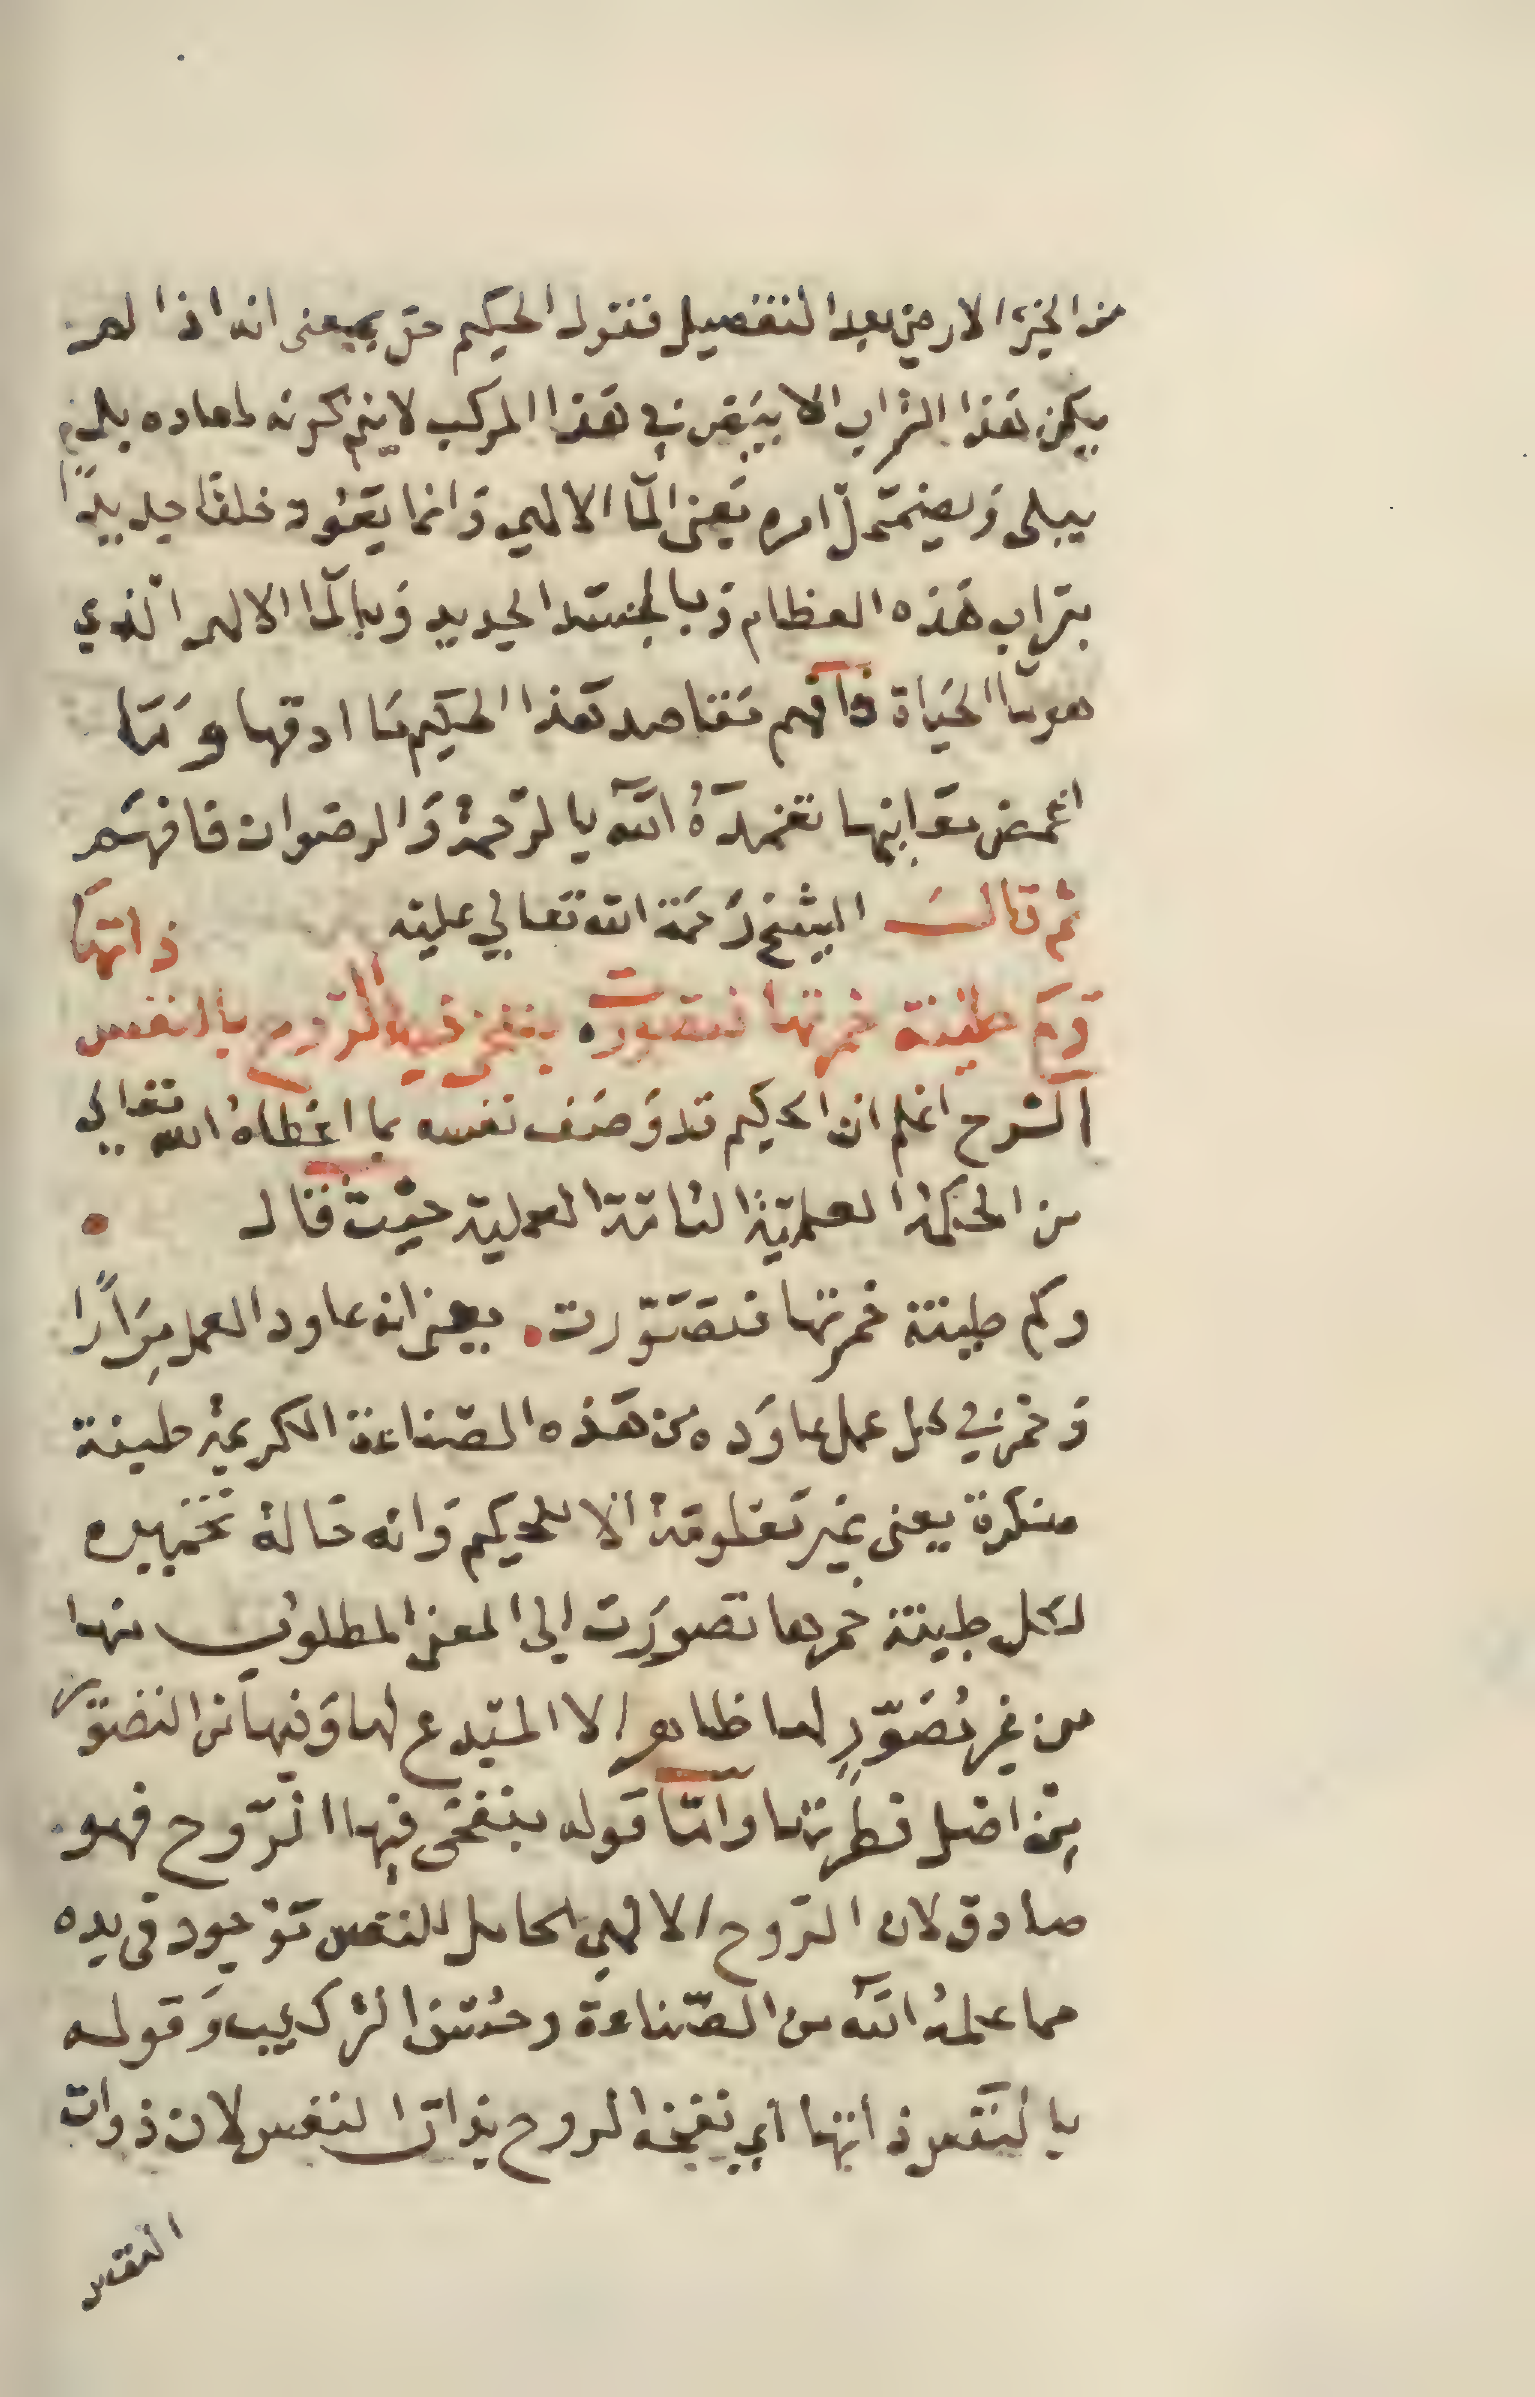 من الجزء الارضي بعد التفصيل فقول الحكيم حق بمعنى انه اذا لم
يكن هذا التراب الابيض في هذا المركب لا يتم كونه ومعاده بل
يبلى ويضمحل امره يعني الماء الالهي وانما يعود خلقا جديدًا
بتراب هذه العظام وبالجسد الجديد وبالماء الالهي الذي
هو ماء الحياة فافهم مقاصد هذا الحكيم ما ادقها وما
اغمض معانيها تغمدهُ اللّه بالرحمة والرضوان فافهم
ثم قال الشيخ رحمة الله تعالي عليه
وكم طينة خمرتها فتصورت بنفخي فيها الروح بالنفس ذاتها
الشرح اعلم ان الحكيم قد وصف نفسه بما اعطاهُ الله تعالى
من الحكمة العلمية التامة العملية حيث قال
وكم طينة خمرتها فتصَوّرت يعني انه عاود العمل مِرَارًا
وخمر في كل عمل عاوَده من هذه الصناعة الكريمة طينة
منكرة يعني غير معلومة الا للحكيم وانه حالة تخميره
لكل طينة خمرها تصورت الى المعنى المطلوب منها
من غير تصَوّرٍ لها ظاهر الا المبدع لها وفيها من التصوّر
مِن اصل فطرتها وامّا قوله بنفخي فيها الرّوح فهو
صادق لان الرّوح الالهي الحامل للنفس موجود في يده
مما علمهُ اللّه من الصّناعة وحُسن التركيب وقوله
بالنفس ذاتها اي نفخ الروح بذات النفس لان ذوات
النفس